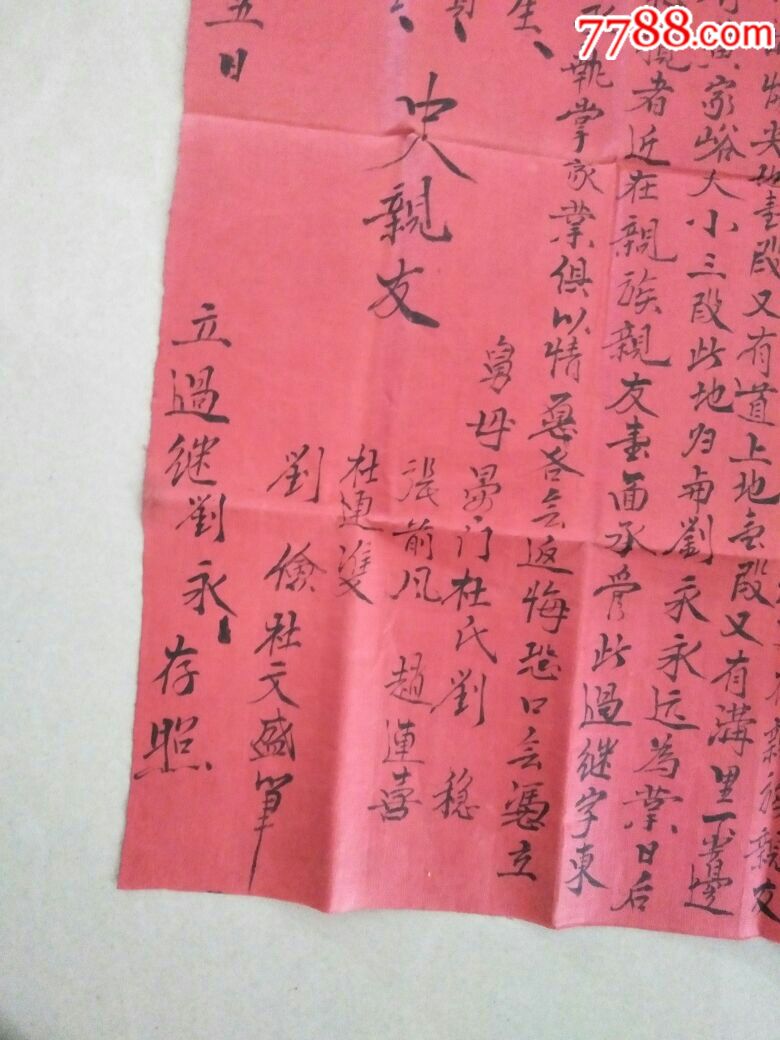 7788.com
族親友
尖地壹段又有道上地壹段又有溝里一
家峪大小三段此地归與劉永永远為業日后
者近在親族親友壹面承管此過継字東
掌家業俱以情愿各無返悔恐口無憑立
舅母晏门杜氏劉 穏
張前凤 趙連喜
中人親友
杜連雙
劉 儉 杜文盛筆
五日
立過继劉永永存照